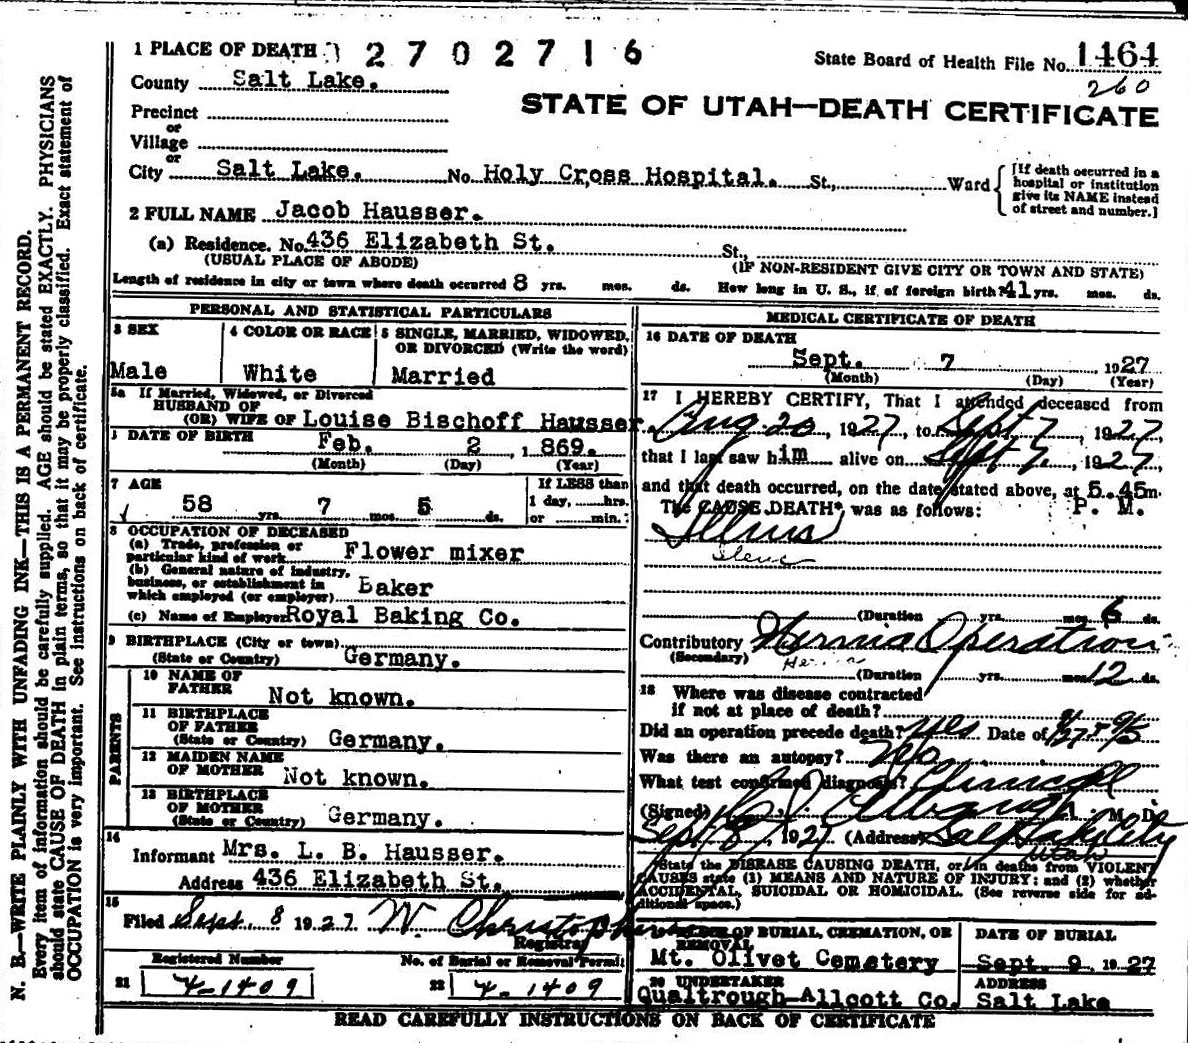 1 PLACE OF DEATH 2702716
State Board of Health File No. 1464
260
County Salt Lake.
STATE OF UTAH—DEATH CERTIFICATE
Precinct
or
Village
or
City Salt Lake. No Holy Cross Hospital. St., Ward
[If death occurred in a
hospital or institution
give its NAME instead
of street and number.]
2 FULL NAME Jacob Hausser.
(a) Residence. No. 436 Elizabeth St. St.,
(USUAL PLACE OF ABODE) (IF NON-RESIDENT GIVE CITY OR TOWN AND STATE)
Length of residence in city or town where death occurred 8 yrs. mos. ds. How long in U. S., if of foreign birth? 41 yrs. mos. ds.
PERSONAL AND STATISTICAL PARTICULARS
3 SEX
Male
4 COLOR OR RACE
White
5 SINGLE, MARRIED, WIDOWED,
OR DIVORCED (Write the word)
Married
5a If Married, Widowed, or Divorced
HUSBAND OF
(OR) WIFE OF Louise Bischoff Hausser.
DATE OF BIRTH Feb. 2, 1869.
(Month) (Day) (Year)
7 AGE
58 yrs. 7 mos. 5 ds.
If LESS than
1 day, hrs.
or min.
8 OCCUPATION OF DECEASED
(a) Trade, profession or
particular kind of work Flower mixer
(b) General nature of industry,
business, or establishment in
which employed (or employer) Baker
(c) Name of Employer Royal Baking Co.
9 BIRTHPLACE (City or town)
(State or Country) Germany.
PARENTS
10 NAME OF
FATHER Not known.
11 BIRTHPLACE
OF FATHER
(State or Country) Germany.
12 MAIDEN NAME
OF MOTHER Not known.
13 BIRTHPLACE
OF MOTHER
(State or Country) Germany.
14
Informant Mrs. L. B. Hausser.
Address 436 Elizabeth St.
15
Filed Sept. 8 1927 W Christopherson
Registrar
Registered Number
21 4-1409
No. of Burial or Removal Permit
22 4-1409
MEDICAL CERTIFICATE OF DEATH
16 DATE OF DEATH
Sept. 7 1927
(Month) (Day) (Year)
17 I HEREBY CERTIFY, That I attended deceased from
Aug 20, 1927, to Sept 7, 1927,
that I last saw him alive on Sept 7, 1927,
and that death occurred, on the date stated above, at 5.45 m.
The CAUSE DEATH* was as follows: P. M.
Illeus
Ileus
(Duration yrs. mos. 6 ds.
Contributory Hernia Operation
(Secondary) Hernia
(Duration yrs. mos. 12 ds.
18 Where was disease contracted
if not at place of death?
Did an operation precede death? yes Date of
Was there an autopsy? No
What test confirmed diagnosis? Clinical
(Signed) M. D.
Sept 8, 1927 (Address) Salt Lake City
Utah
*State the DISEASE CAUSING DEATH, or in deaths from VIOLENT
CAUSES state (1) MEANS AND NATURE OF INJURY; and (2) whether
ACCIDENTAL, SUICIDAL OR HOMICIDAL. (See reverse side for ad-
ditional space.)
OF BURIAL, CREMATION, OR
REMOVAL
Mt. Olivet Cemetery
DATE OF BURIAL
Sept. 9 1927
20 UNDERTAKER
Qualtrough-Allcott Co.
ADDRESS
Salt Lake
READ CAREFULLY INSTRUCTIONS ON BACK OF CERTIFICATE
N. B.—WRITE PLAINLY WITH UNFADING INK—THIS IS A PERMANENT RECORD.
Every item of information should be carefully supplied. AGE should be stated EXACTLY. PHYSICIANS
should state CAUSE OF DEATH in plain terms, so that it may be properly classified. Exact statement of
OCCUPATION is very important. See instructions on back of certificate.